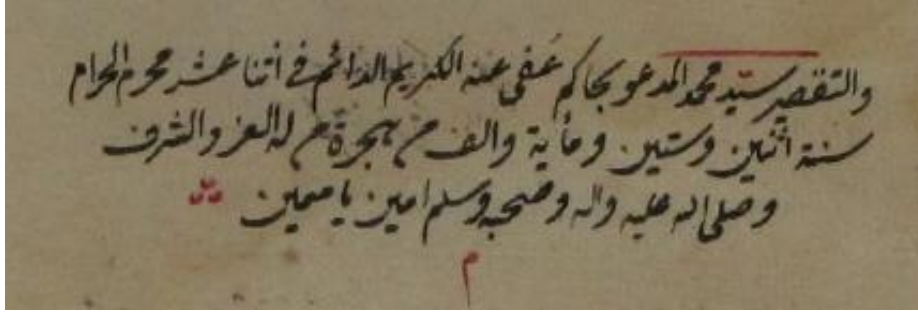 والتقصير سيد محمد المدعو بحاكم عفى عنه الكريم الدائم في اثنا عشر محرم الحرام
سنة اثنين وستين ومأية والف من هجرة من له العز والشرف
وصلى اله عليه واله وصحبه وسلم امين يا معين
م